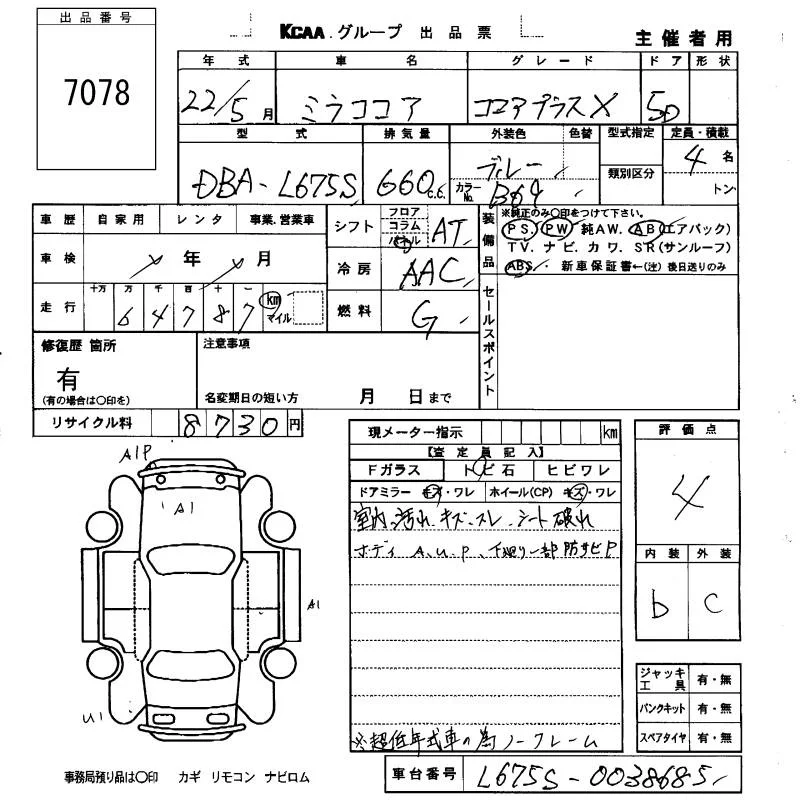 出品番号
7078
KCAA.グループ 出品票
主催者用
年式 車名 グレード ドア 形状
22/5月 ミラココア ココアプラスX 5D
型式 排気量 外装色 色替 型式指定 定員・積載
DBA-L675S 660c.c. ブルー カラーNo. B69 類別区分 4名
トン
車歴 自家用 レンタ 事業.営業車
シフト フロア コラム パネル AT
装備品 ※純正のみ〇印をつけて下さい。
PS. PW 純AW. AB(エアバック)
TV. ナビ. カワ. SR(サンルーフ)
ABS. 新車保証書←(注)後日送りのみ
車検 年 月
冷房 AAC
走行 十万 万 千 百 十 一
6 4 7 8 7 km マイル
燃料 G
セールスポイント
修復歴 箇所
有
(有の場合は〇印を)
注意事項
名変期日の短い方 月 日まで
リサイクル料 8730円
現メーター指示 km
【査定員記入】
Fガラス トビ石 ヒビワレ
ドアミラー キズ・ワレ ホイール(CP) キズ・ワレ
室内、汚れ、キズ、スレ、シート破れ
ボディ A.U.P、下廻り一部防サビP
※超低年式車の為ノークレーム
評価点
4
内装 外装
b C
ジャッキ工具 有・無
パンクキット 有・無
スペアタイヤ 有・無
A1P
A1
A1
U1
事務局預り品は〇印 カギ リモコン ナビロム
車台番号 L675S-0038685